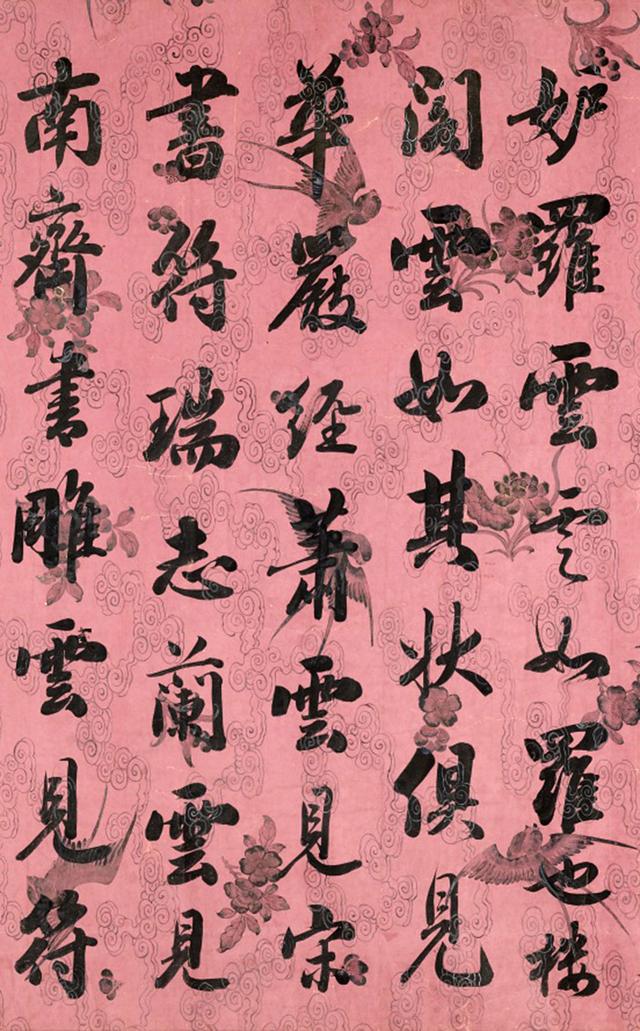 妒羅雲雲如羅也楼
閣雲如其狀俱見
華嚴經蕭雲見宋
書符瑞志蘭雲見
南齊書雕雲見符